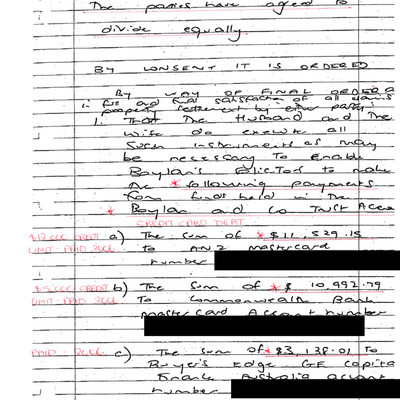 The parties have agreed to
divide equally.
BY CONSENT IT IS ORDERED
BY WAY OF FINAL ORDER &
in full and final satisfaction of all claims
property settlement by either party:
1. THAT The Husband and The
Wife do execute all
Such instruments as may
be necessary To enable
Boylan's Solicitor to make
the * following payments
from funds held in The
* Boylan and Co Trust Acco
CREDIT CARD DEBT
CREDIT a) The sum of * $11,529.15
LIMIT PAID 2006 to ANZ Mastercard
number
CREDIT b) The Sum of * $10,992.79
LIMIT PAID 2006 To Commonwealth Bank
Mastercard Account number
PAID 2006 c) The sum of * $3,138.01 To
Buyer's Edge GE Capital
Finance Australia account
number